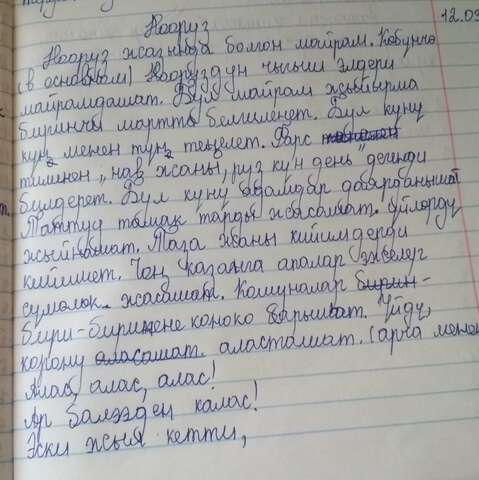 12.03
Нооруз
Нооруз жазында болгон майрам. Көбүнчө
(в основном) Нооруздун чыгыш элдери
майрамдашат. Бул майрам жыйырма
биринчи мартта белгиленет. Бул күнү
күн менен түн теңелет. Фарс
тилинен „нав жаңы, руз күн день" дегенди
билдерет. Бул күнү адамдар даярданышат
Таттуу тамак тарды жасашат. Үйлөрдү
жыйнашат. Таза жаңы кийимдерди
кийишет. Чоң казанга апалар
сумолок жасашат. Кошуналар бирин-
бири-бирикене конокко барышат. Үйдү,
корону аласашат. аласташат. (арча менен
Алас, алас, алас!
Ар балээден калас!
Эски жыл кетти,